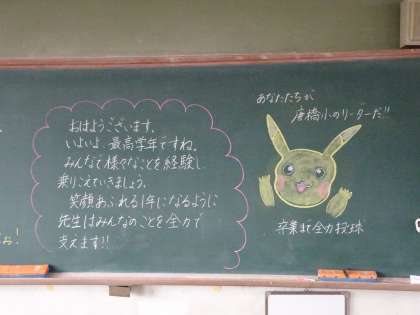 おはようございます。
いよいよ、最高学年ですね。
みんなで様々なことを経験し、
乗りこえていきましょう。
笑顔あふれる1年になるように
先生はみんなのことを全力で
支えます!!
あなたたちが
唐橋小のリーダーだ!!
卒業まで全力投球
お!